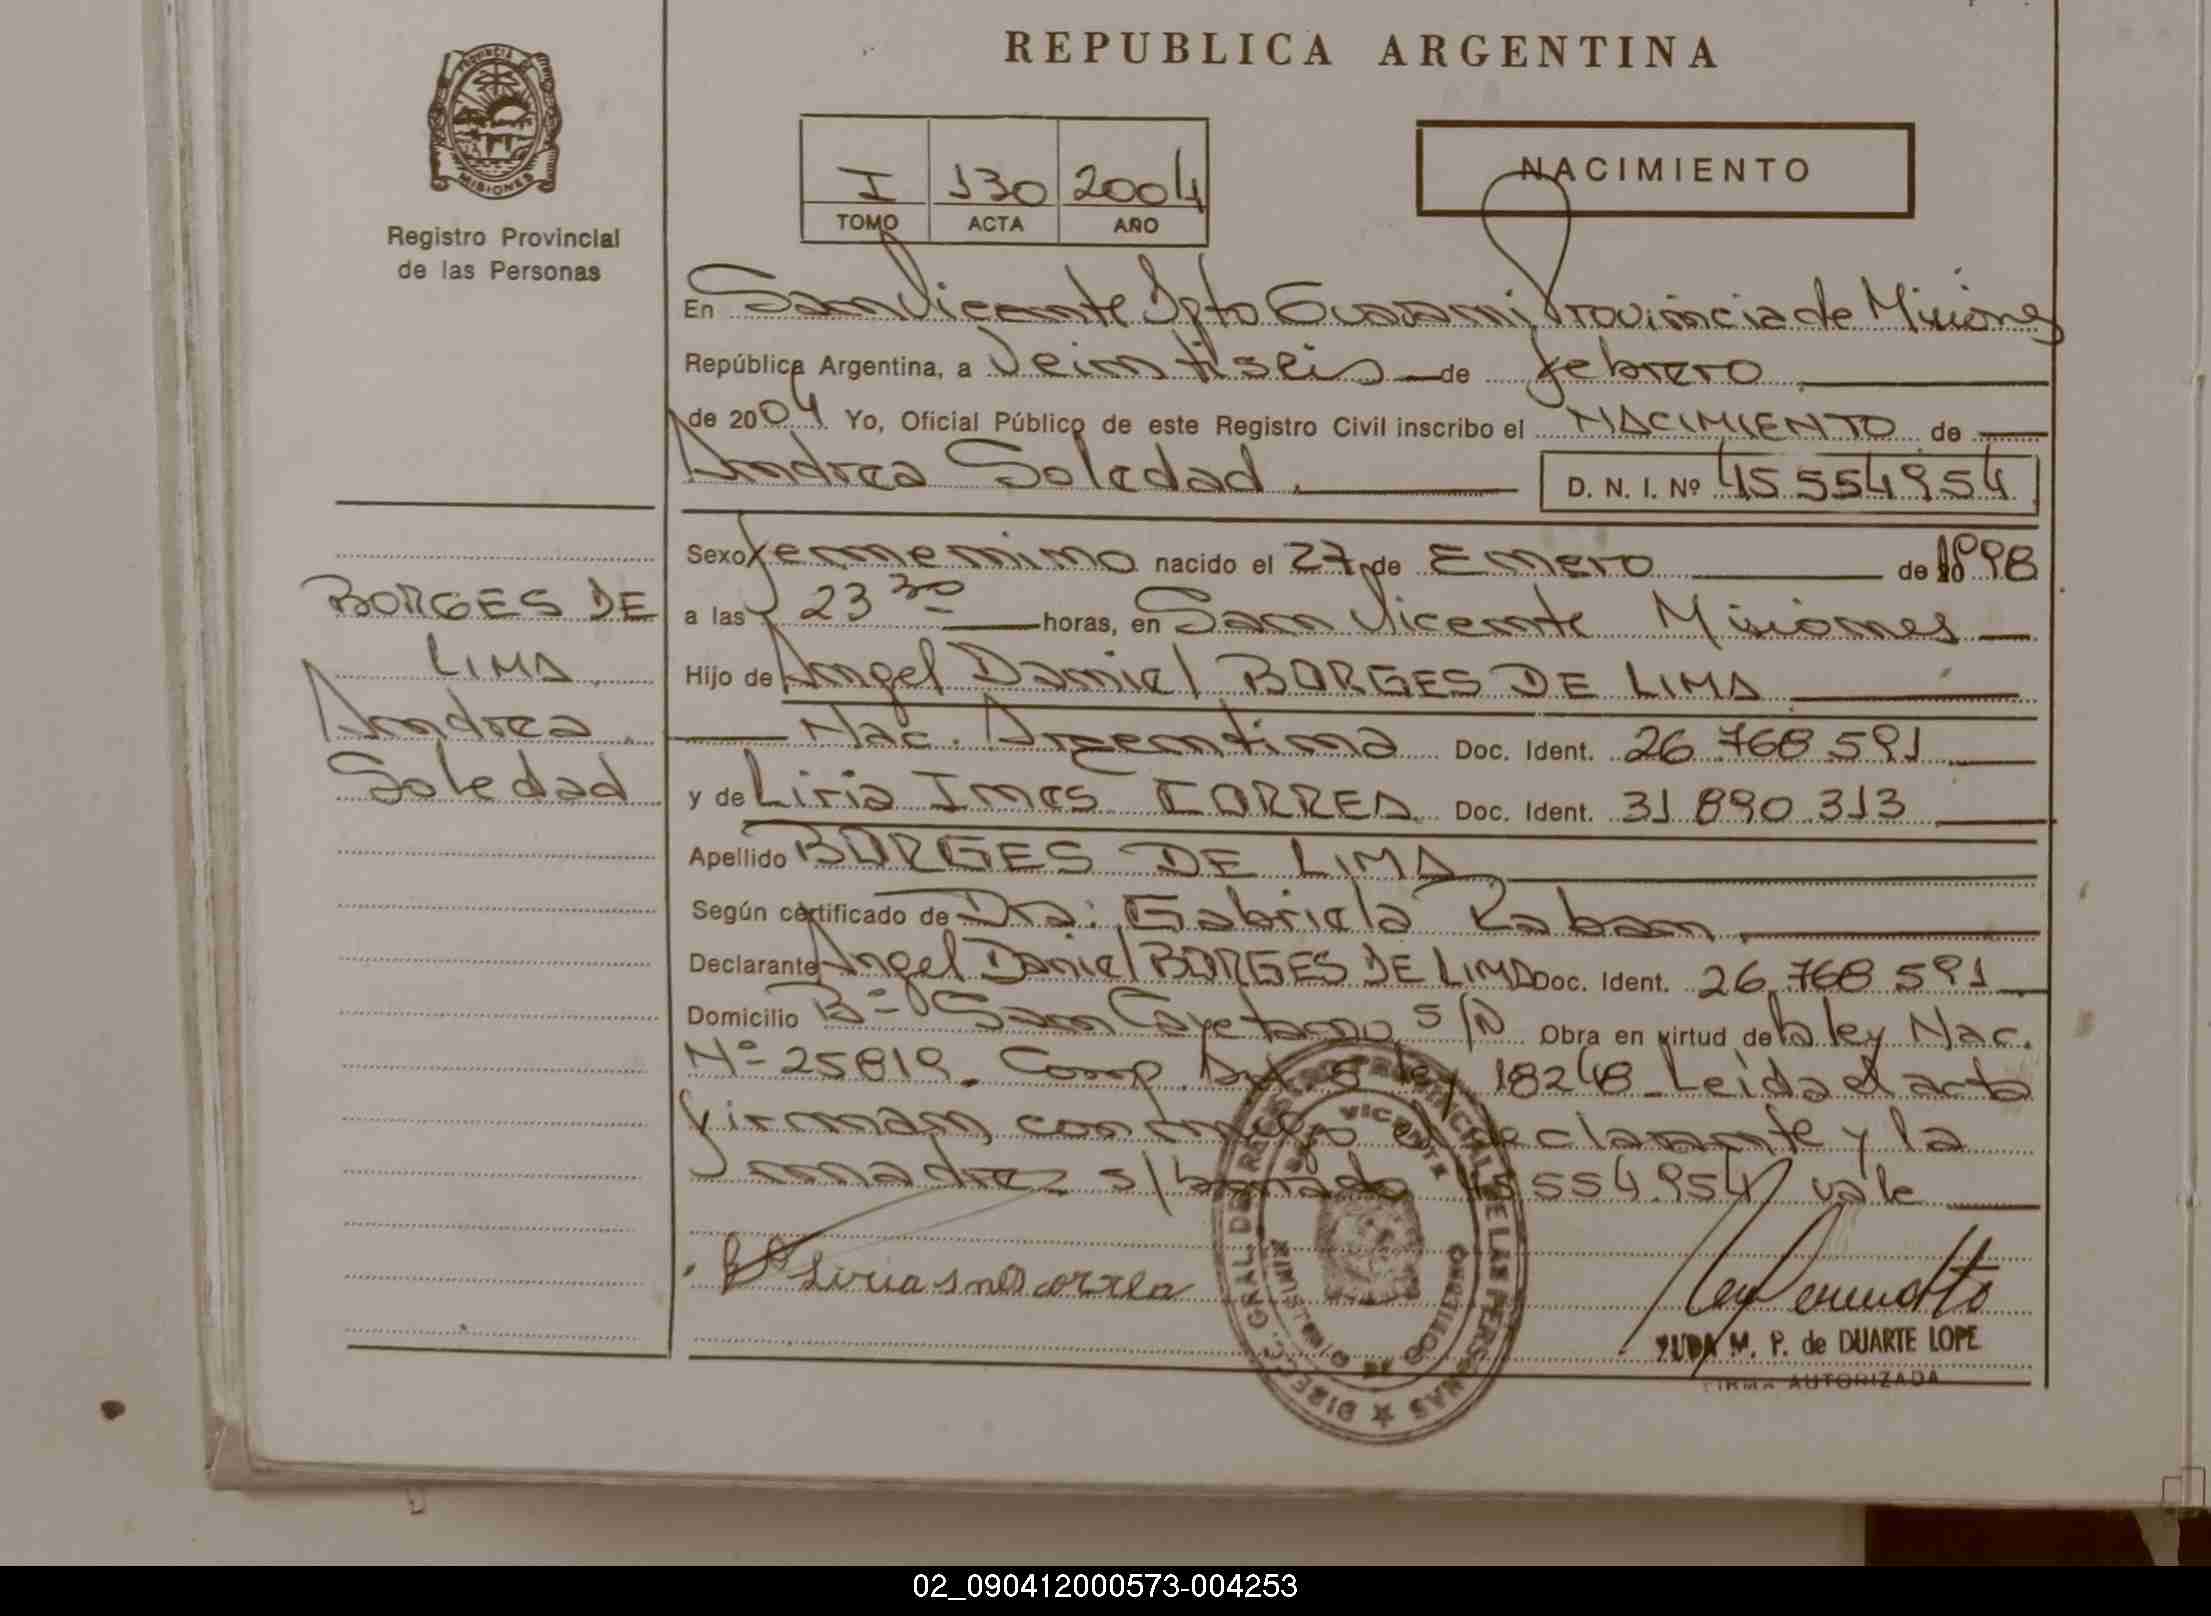 REPUBLICA ARGENTINA
PROVINCIA
MISIONES
Registro Provincial
de las Personas
I 130 2004
TOMO ACTA AÑO
NACIMIENTO
En San Vicente Dpto Guarani Provincia de Misiones
República Argentina, a Veintiseis de febrero
de 2004 Yo, Oficial Público de este Registro Civil inscribo el NACIMIENTO de
Andrea Soledad D. N. I. Nº 45 554954
Sexo femenino nacido el 27 de Enero de 1998
a las 23 30 horas, en San Vicente Misiones
Hijo de Angel Daniel BORGES DE LIMA
Nac. Argentina Doc. Ident. 26.768.591
y de Liria Ines CORREA Doc. Ident. 31 890.313
Apellido BORGES DE LIMA
Según certificado de Dra: Gabriela Raban
Declarante Angel Daniel BORGES DE LIMA Doc. Ident. 26.768 591
Domicilio Bº San Cayetano s/n Obra en virtud de la ley Nac.
Nº 25819. Comp. Art. 5 ley 18248 Leida el acta
firman conmigo el declarante y la
madre s/borrado 45 554.954 vale
BORGES DE
LIMA
Andrea
Soledad
Liria Ines Correa
DIREC. GRAL. DE REGISTRO PROVINCIAL DE LAS PERSONAS
VICENTE
MINISTERIO DE GOBIERNO
YUDA M. P. de DUARTE LOPE
FIRMA AUTORIZADA
02_090412000573-004253